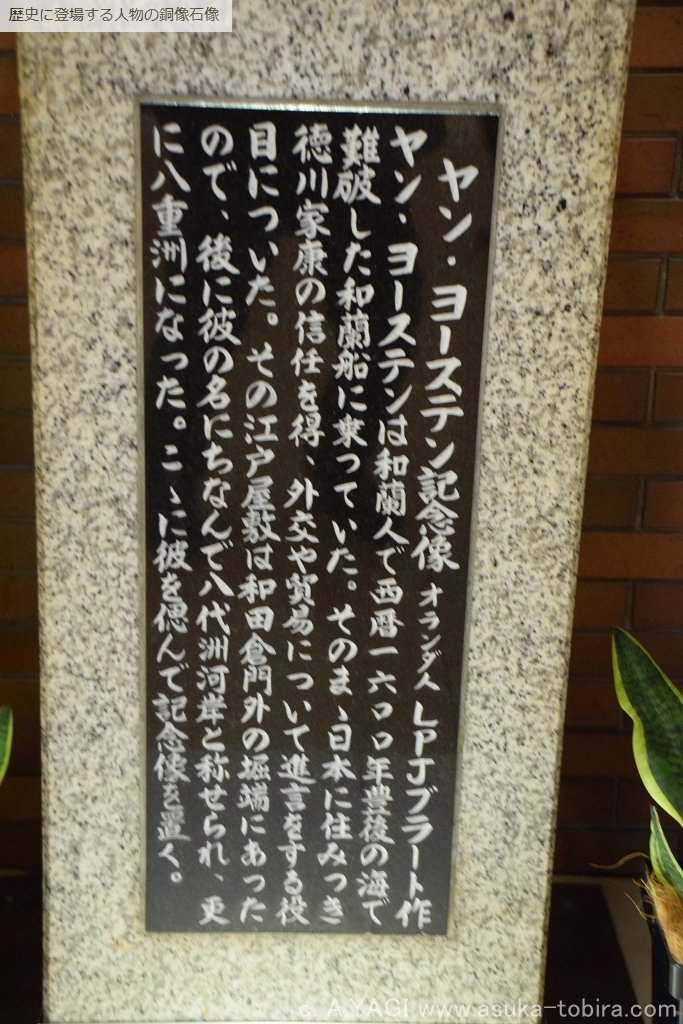 歴史に登場する人物の銅像石像
ヤン・ヨーステン記念像 オランダ人 LPJブラート作
ヤン・ヨーステンは和蘭人で西暦一六〇〇年豊後の海で
難破した和蘭船に乗っていた。そのまゝ日本に住みつき
徳川家康の信任を得、外交や貿易について進言をする役
目についた。その江戸屋敷は和田倉門外の堀端にあった
ので、後に彼の名にちなんで八代洲河岸と称せられ、更
に八重洲になった。こゝに彼を偲んで記念像を置く。
c. A.YAGI www.asuka-tobira.com